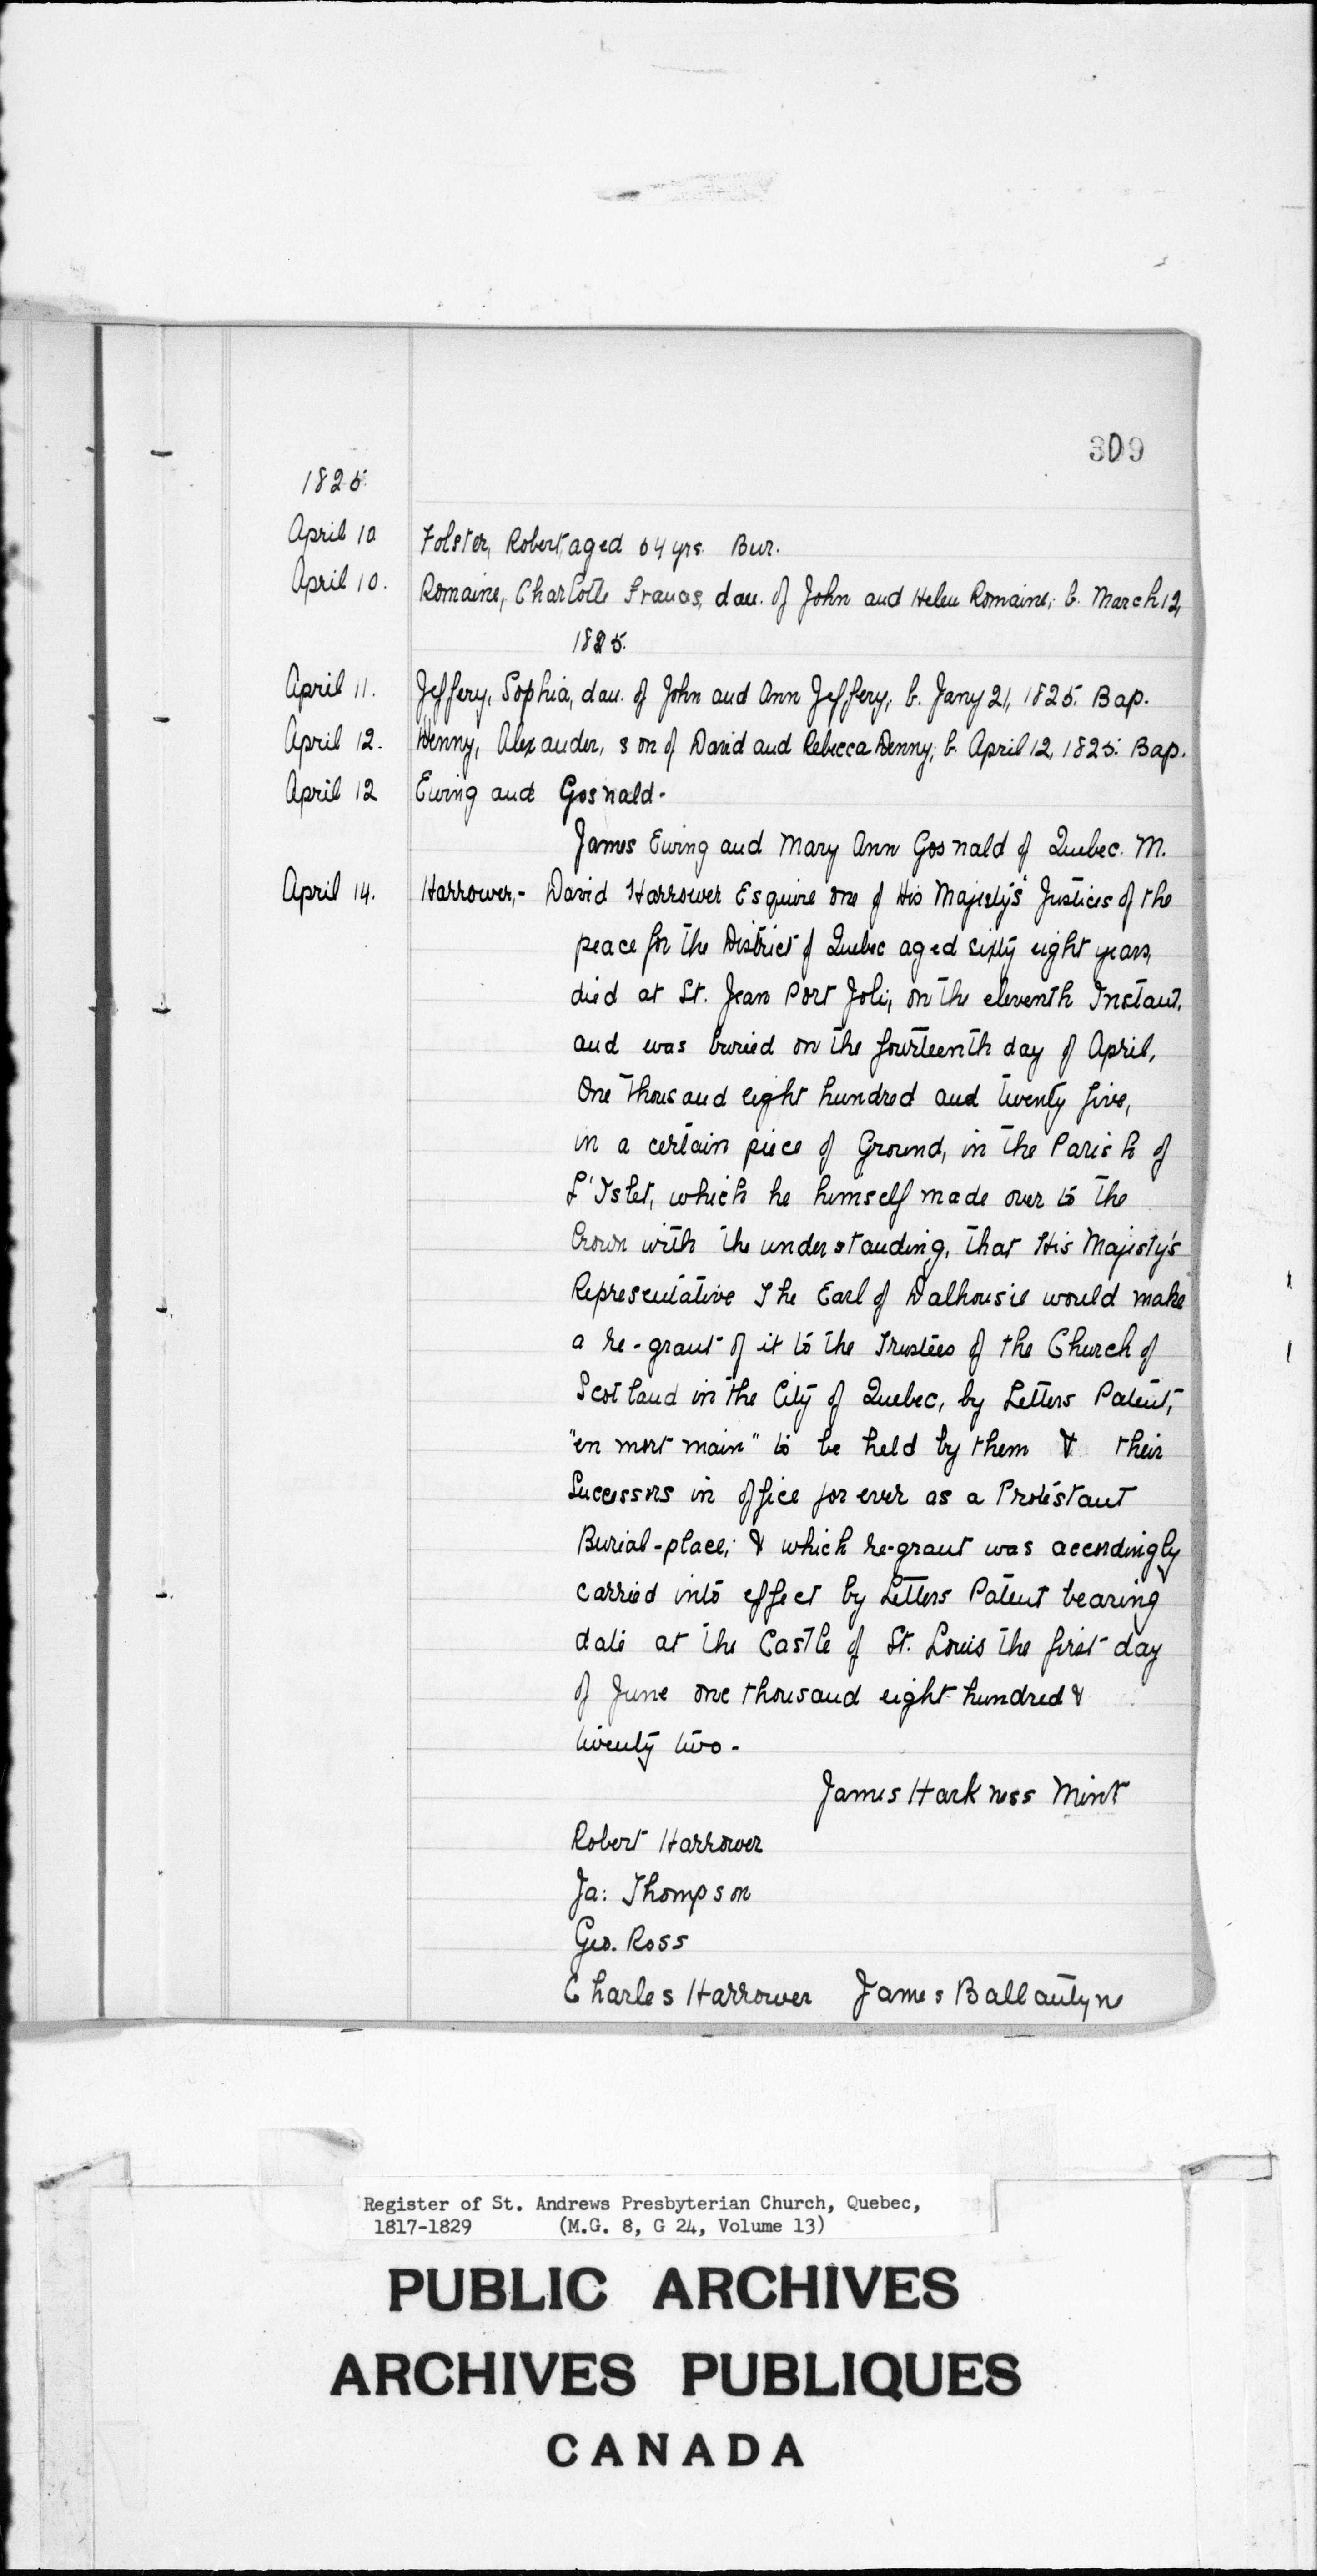 309
1825.
April 10 Folster, Robert, aged 64 yrs. Bur.
April 10. Romaine, Charlotte Frances, dau. of John and Helen Romaine; b. March 12,
1825.
April 11. Jeffery, Sophia, dau. of John and Ann Jeffery; b. Jany 21, 1825. Bap.
April 12. Denny, Alexander, son of David and Rebecca Denny; b. April 12, 1825. Bap.
April 12 Ewing and Gosnald.
James Ewing and Mary Ann Gosnald of Quebec. M.
April 14. Harrower,- David Harrower Esquire one of His Majesty's Justices of the
peace for the District of Quebec aged sixty eight years,
died at St. Jean Port Joli, on the eleventh Instant,
and was buried on the fourteenth day of April,
One thousand eight hundred and twenty five,
in a certain piece of Ground, in the Parish of
L'Islet, which he himself made over to the
Crown with the understanding, that His Majesty's
Representative The Earl of Dalhousie would make
a re-grant of it to the Trustees of the Church of
Scotland in the City of Quebec, by Letters Patent,
"en mort main" to be held by them & their
Successors in office for ever as a Protestant
Burial-place; & which re-grant was accordingly
carried into effect by Letters Patent bearing
date at the Castle of St. Louis the first day
of June one thousand eight hundred &
twenty two -
James Harkness Minr
Robert Harrower
Ja: Thompson
Geo. Ross
Charles Harrower James Ballantyne
Register of St. Andrews Presbyterian Church, Quebec,
1817-1829 (M.G. 8, G 24, Volume 13)
PUBLIC ARCHIVES
ARCHIVES PUBLIQUES
CANADA